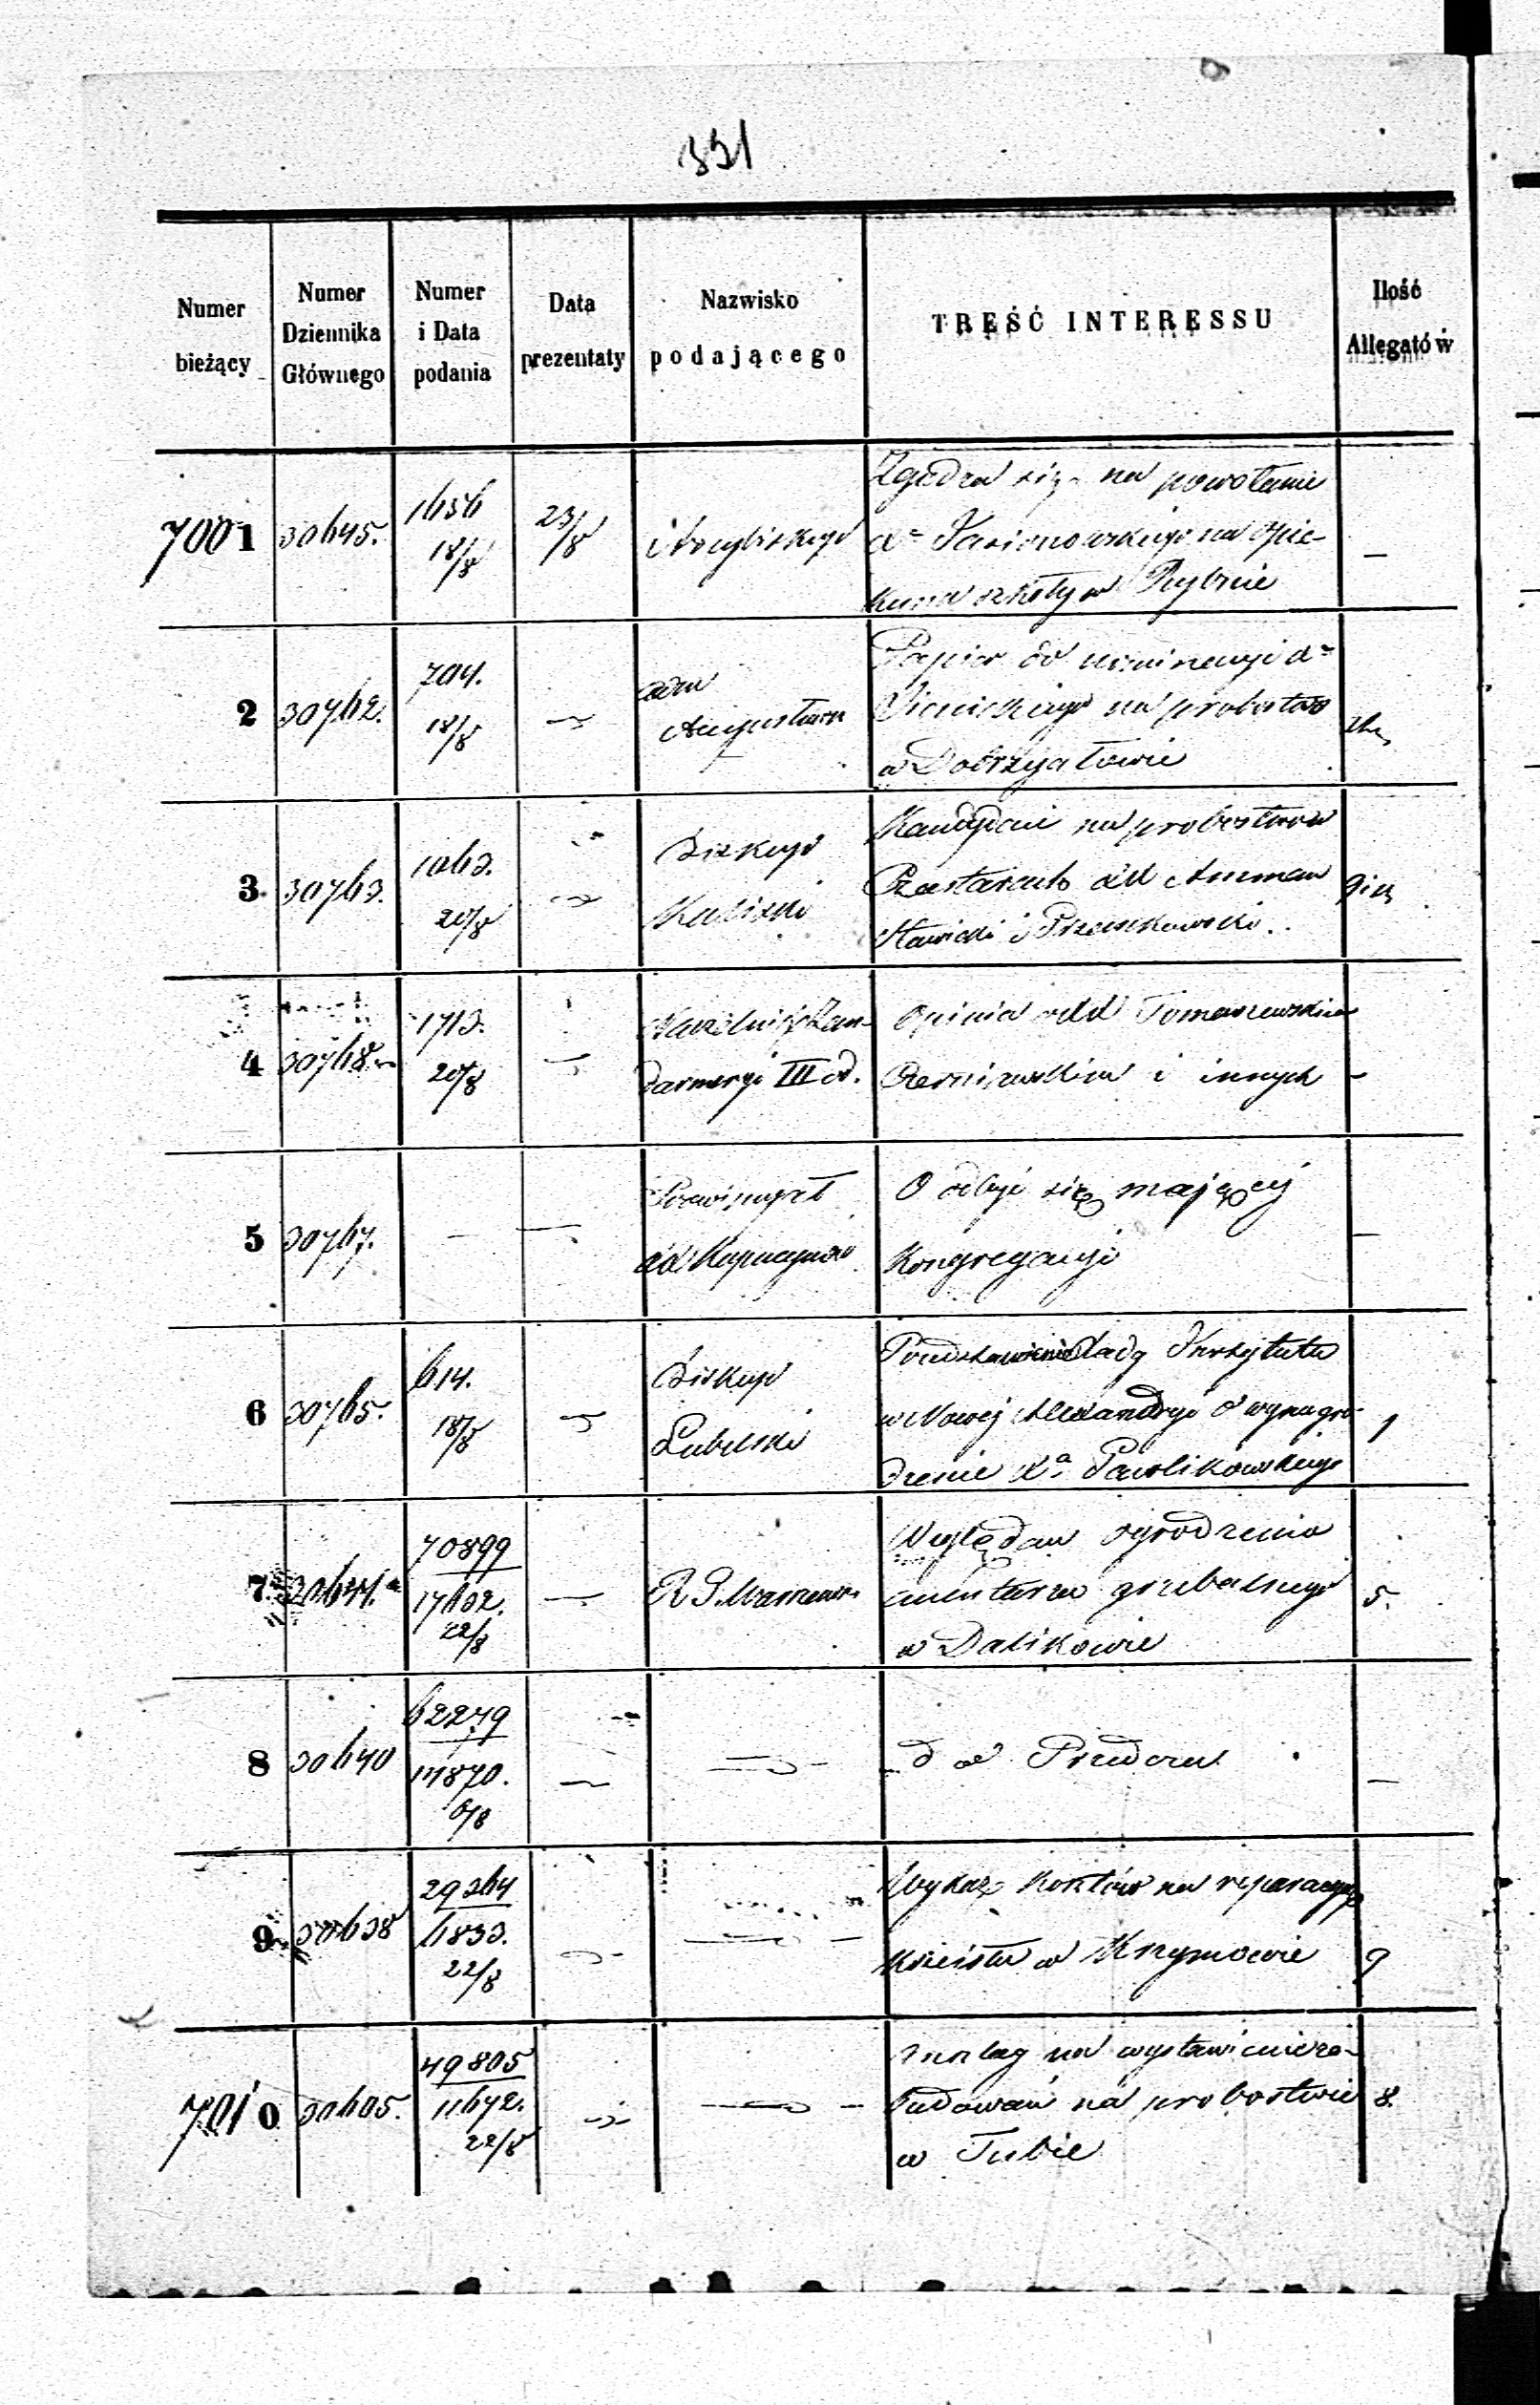 351
Numer bieżący
Numer Dziennika Głównego
Numer i Data podania
Data prezentaty
Nazwisko podającego
TREŚĆ INTERESSU
Ilość Allegatów
7001 30645. 1656 18/8 23/8 Arcybiskup
Zgadza się na powołanie
Xa Jasionowskiego na opie-
kuna szkoły w Rybnie
—
2 30762. 704. 18/8 —
Adm
Augustow
Papier do nominacyi Xa
na probostwo
w Dobrzyjałowie
3 30763. 1063. 20/8 —
Biskup
Kaliski
Kandydaci na probostwo
XX
Sławicki i
4 30768. 1713. 20/8 —
Naczelnik Żan-
darmeryi III od.
Opinia o XX Tomaszewskim
Czerniewskim i innych
—
5 30767. — —
Prowincyał
XX Kapucynów
O odbyć się mającej
Kongregacyi
—
6 30765. 614. 18/8 —
Biskup
Lubelski
Przedstawienie Rady Instytutu
w Nowej Alexandryi o wynagro-
dzenie Xa Pawlikowskiego
1
7 30644. 70899
17602.
22/8
—
R G Warszaws
Względem ogrodzenia
cmentarza grzebalnego
w Dalikowie
5.
8 30640 62279
17870.
6/8
— — —
9 30638 29364
6833.
22/8
— —
Wykaz kosztów na reparacyę
kościoła w Krzymowie
9
7010 30605. 49805
11672.
22/8
— —
na wystawienie za-
budowań na probostwie
w Tubie
8.